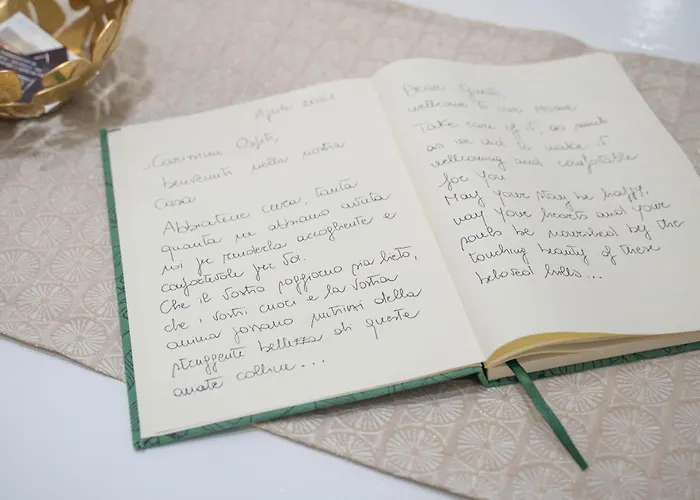 Aprile 2021
Carissimi Ospiti,
benvenuti nella nostra
Casa
Abbiatene cura, tanta
quanta ne abbiamo avuta
noi per renderla accogliente e
confortevole per voi.
Che il vostro soggiorno sia lieto,
che i vostri cuori e la vostra
anima possano nutrirsi della
struggente bellezza di queste
amate colline...
Dear Guests,
welcome to our Home
Take care of it, as much
as we did to make it
wellcoming and confortable
for you
May your stay be happy,
may your hearts and your
souls be nourished by the
touching beauty of these
beloved hills...